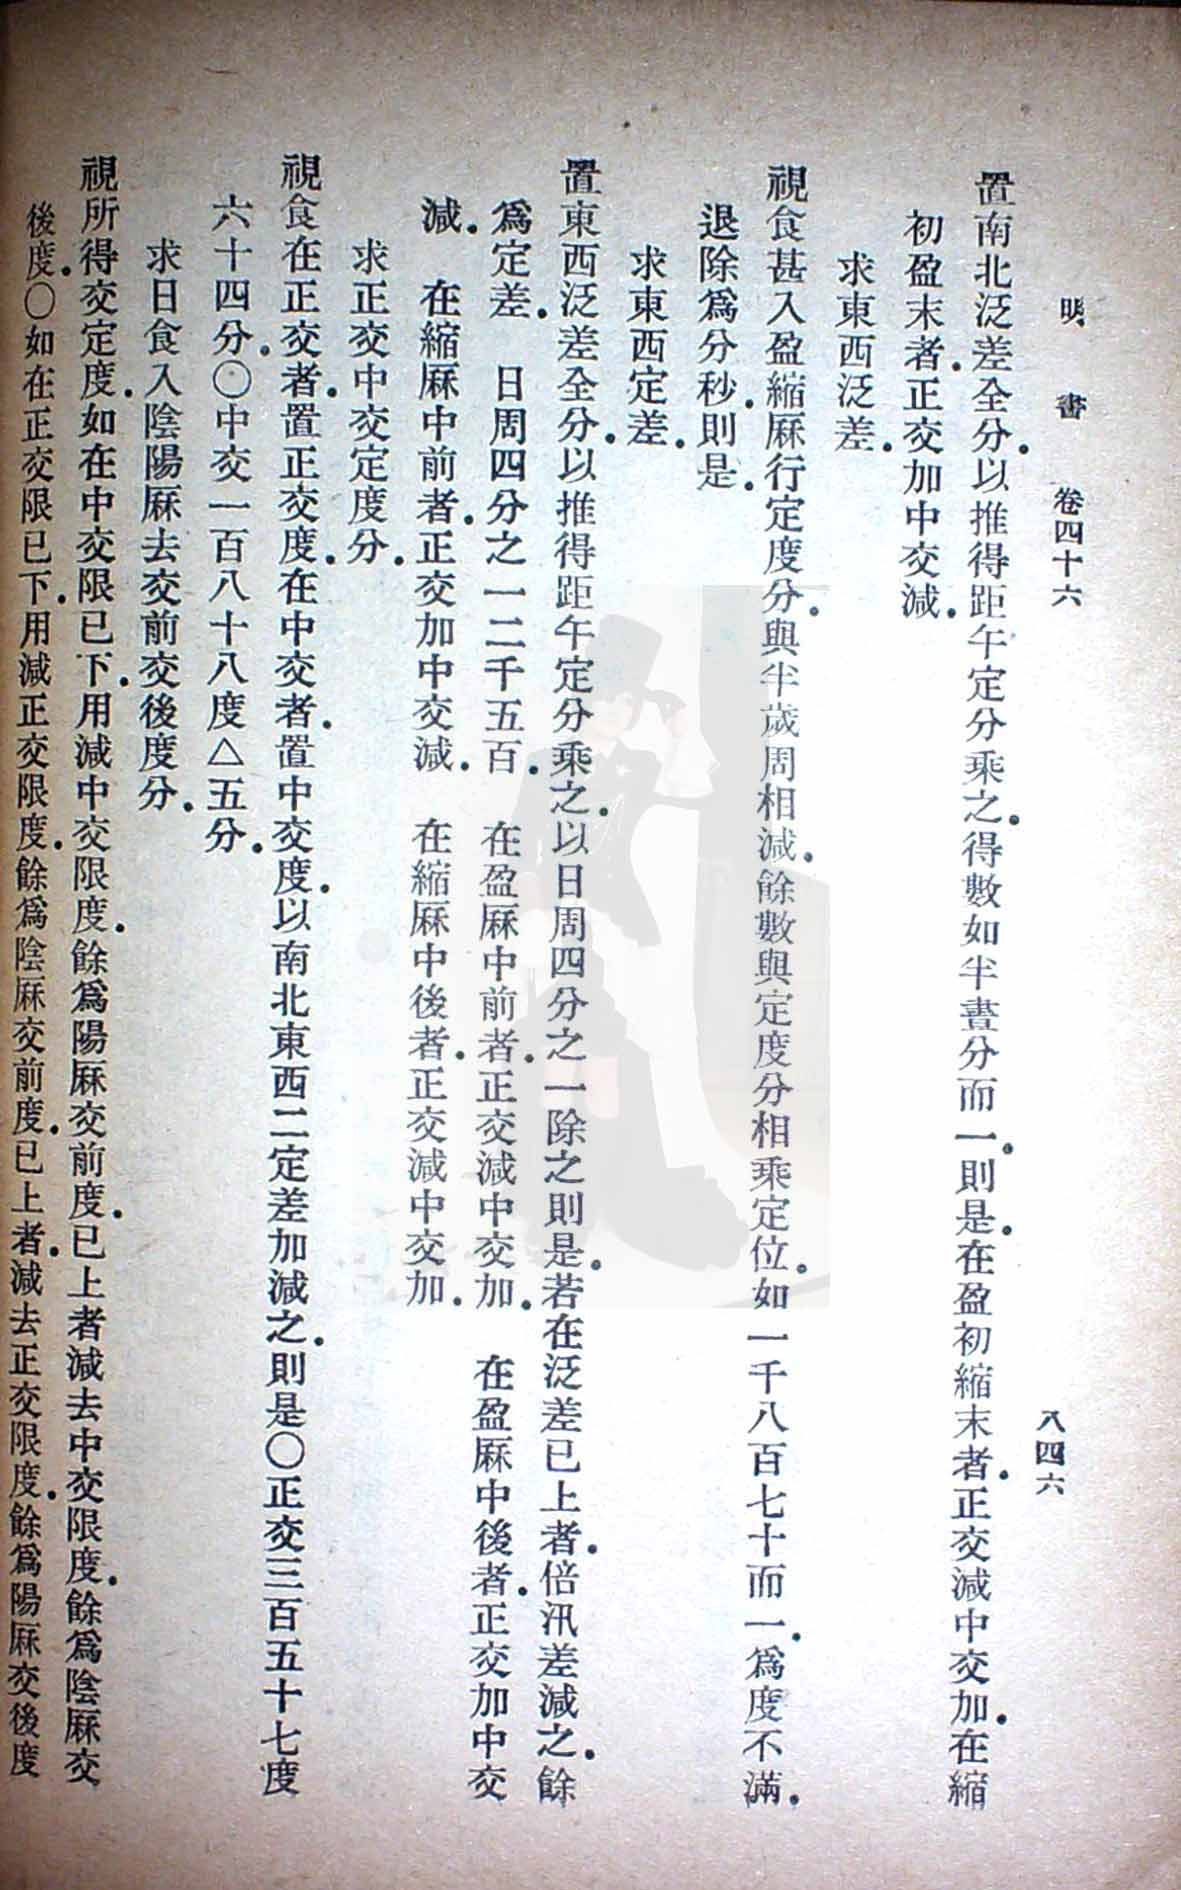 明　書　卷四十六　八四六
置南北泛差全分。以推得距午定分乘之。得數如半晝分而一。則是。在盈初縮末者。正交減中交加。在縮
初盈末者。正交加中交減。
求東西泛差。
視食甚入盈縮厤行定度分。與半歲周相減。餘數與定度分相乘定位。如一千八百七十而一。爲度不滿。
退除爲分秒。則是。
求東西定差。
置東西泛差全分。以推得距午定分乘之。以日周四分之一除之則是。若在泛差已上者。倍汛差減之。餘
爲定差。　日周四分之一二千五百。　在盈厤中前者。正交減中交加。　在盈厤中後者。正交加中交
減。　在縮厤中前者。正交加中交減。　在縮厤中後者。正交減中交加。
求正交中交定度分。
視食在正交者。置正交度。在中交者。置中交度。以南北東西二定差加減之。則是〇正交三百五十七度
六十四分。〇中交一百八十八度△五分。
求日食入陰陽厤去交前交後度分。
視所得交定度。如在中交限已下。用減中交限度。餘爲陽厤交前度。已上者減去中交限度。餘爲陰厤交
後度。〇如在正交限已下。用減正交限度。餘爲陰厤交前度。已上者。減去正交限度。餘爲陽厤交後度